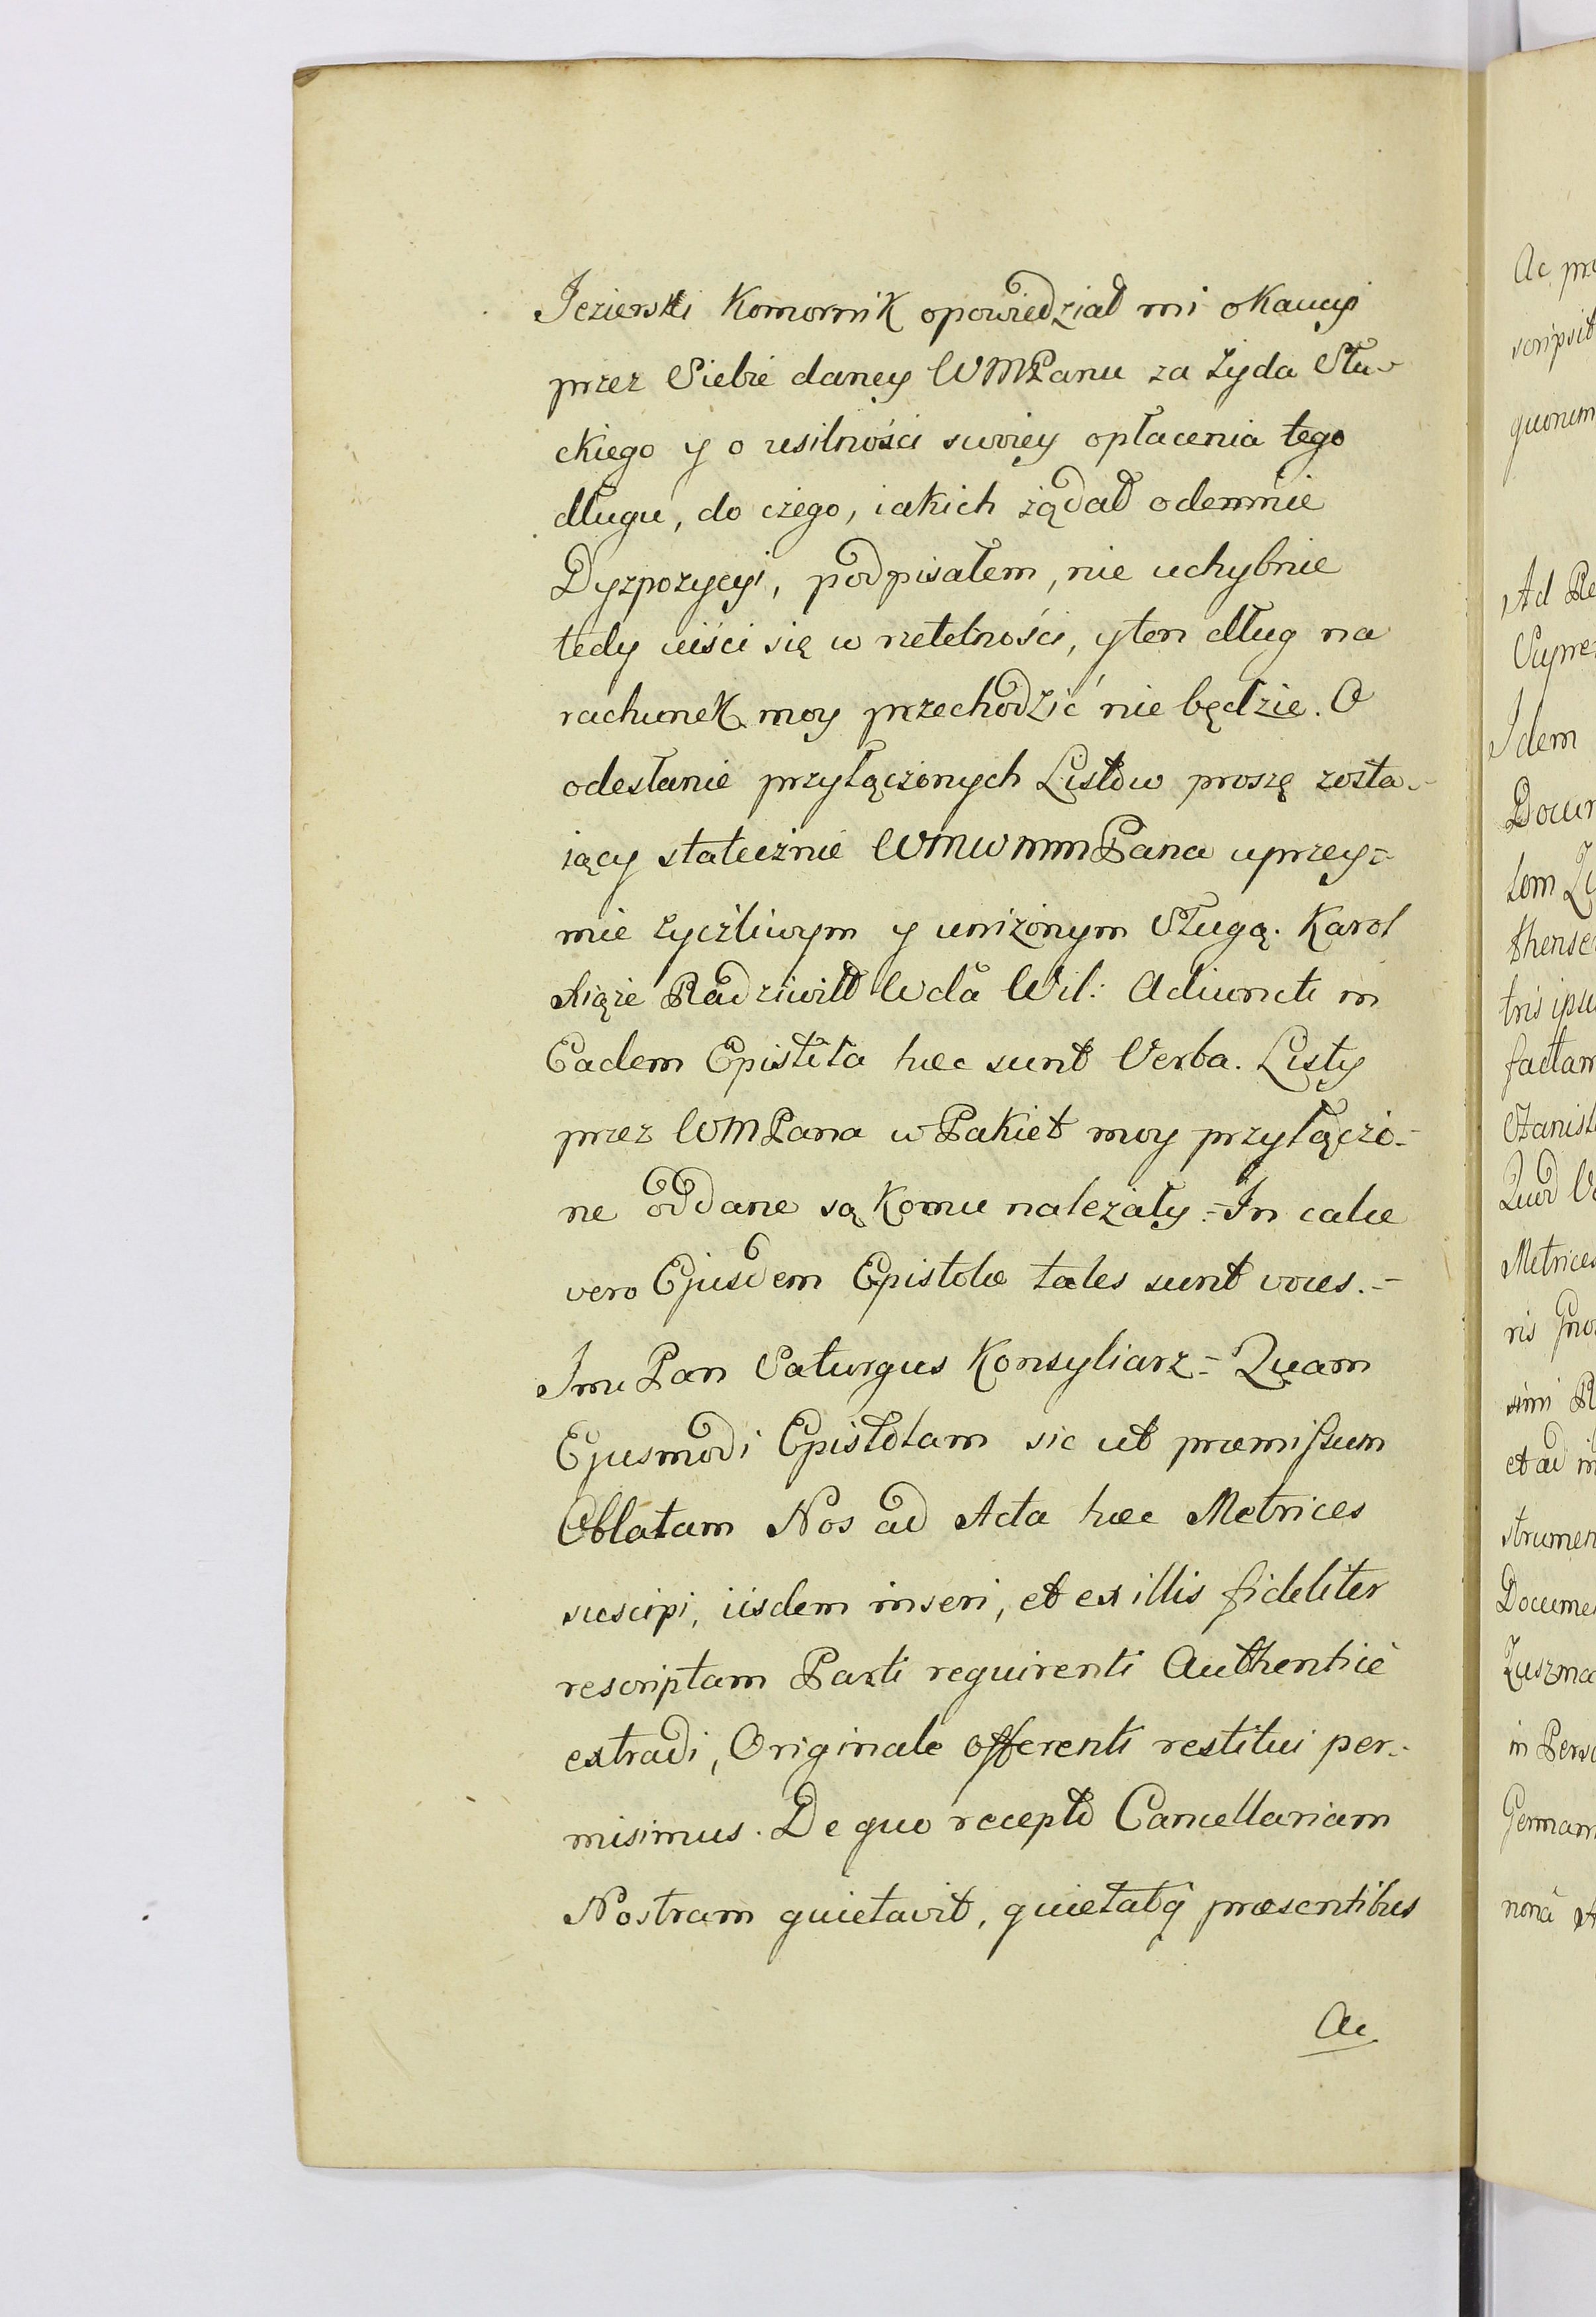 Jezierski Komornik opowiedział mi o Kaucyi
przez Siebie daney WMPanu za Żyda Słu-
ckiego y o usilności swoiey opłacenia tego
długu, do czego, iakich żądał odemnie
Dyzpozycyi, podpisałem, nie uchybnie
tedy uiści się w rzetelności, y ten dług na
rachunek moy przechodzić nie będzie. O
odesłanie przyłączonych Listów proszę zosta-
iący statecznie WMWMMPana uprzey=
mie życzliwym y unizonym Sługą. Karol
Xiąże Radziwiłł Wda Wil: Adiuncti in
Eadem Epistola hæc sunt Verba. Listy
przez WMPana w Pakiet moy przyłączo-
ne oddane są Komu należały.=In calce
vero Ejusdem Epistolæ tales sunt voces.=
Jmć Pan Paturgus Konsyliarz= Quam
Ejusmodi Epistolam sic ut præmissum
Oblatam Nos ad Acta hæc Metrices
suscipi, iisdem inseri, et ex illis fideliter
rescriptam Parti requirenti Authenticè
extradi, Originale offerenti restitui per-
misimus. De quo recepto Cancellariam
Nostram quietavit, quietatq præsentibus
Ac
Ac
quorum
Ad
Idem
tom
tris
factam
Quod
Metrices
ris
simi
et ad
in
Germam